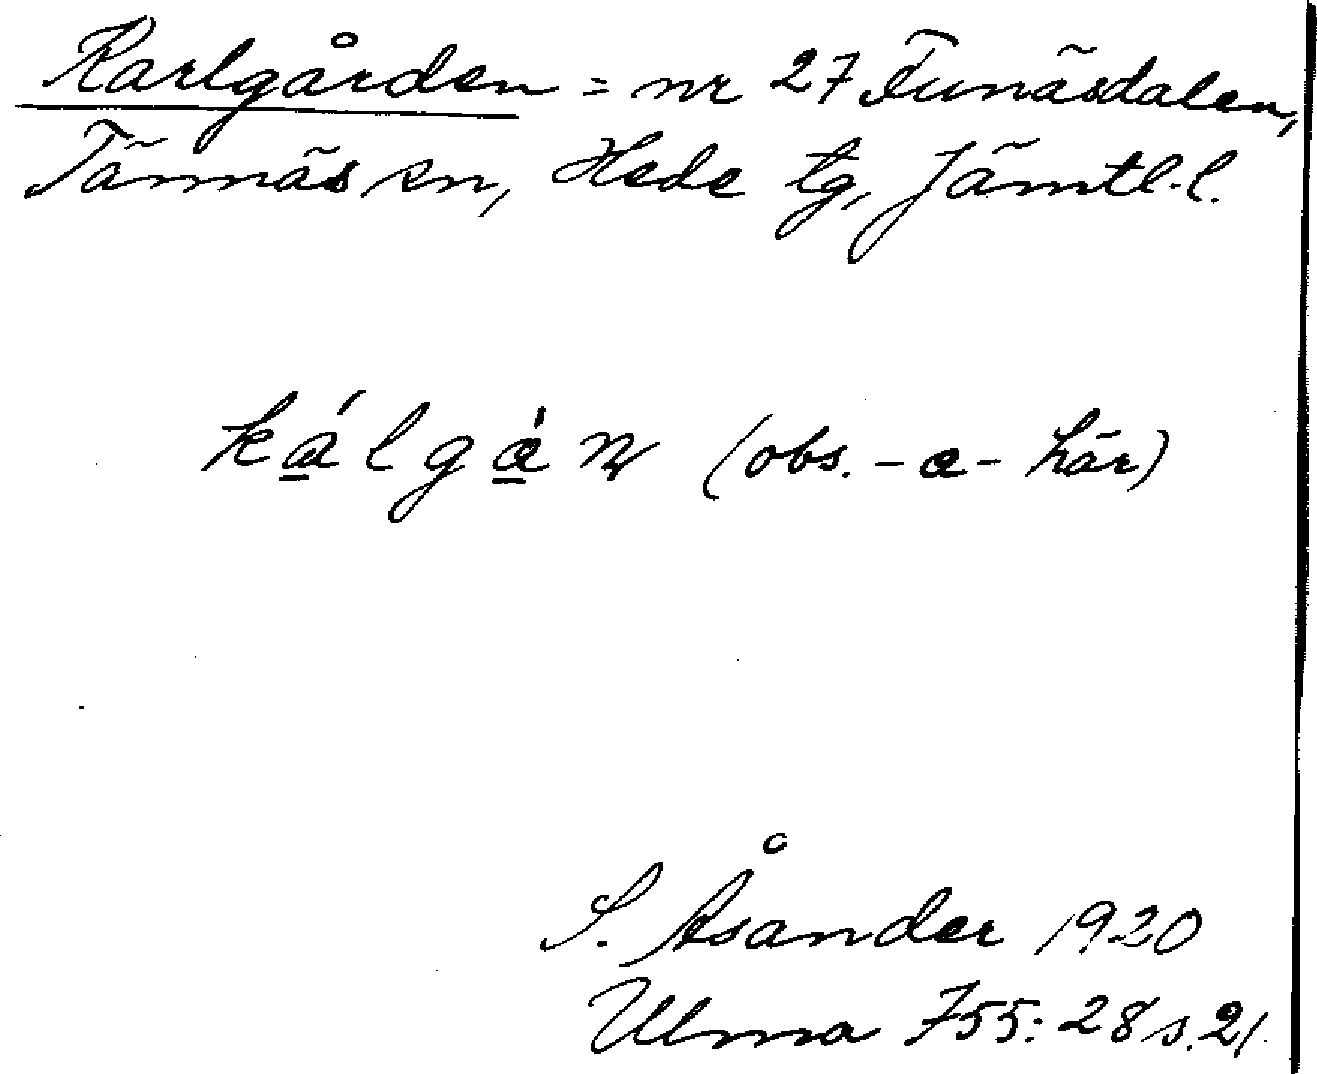 Karlgården = nr 27 Funäsdalen,
Tännäs sn, Hede tg, Jämtl. l.
ká̱lgà̱n (obs. -a- här)
S. Åsander 1920
Ulma 755:28 s. 21.